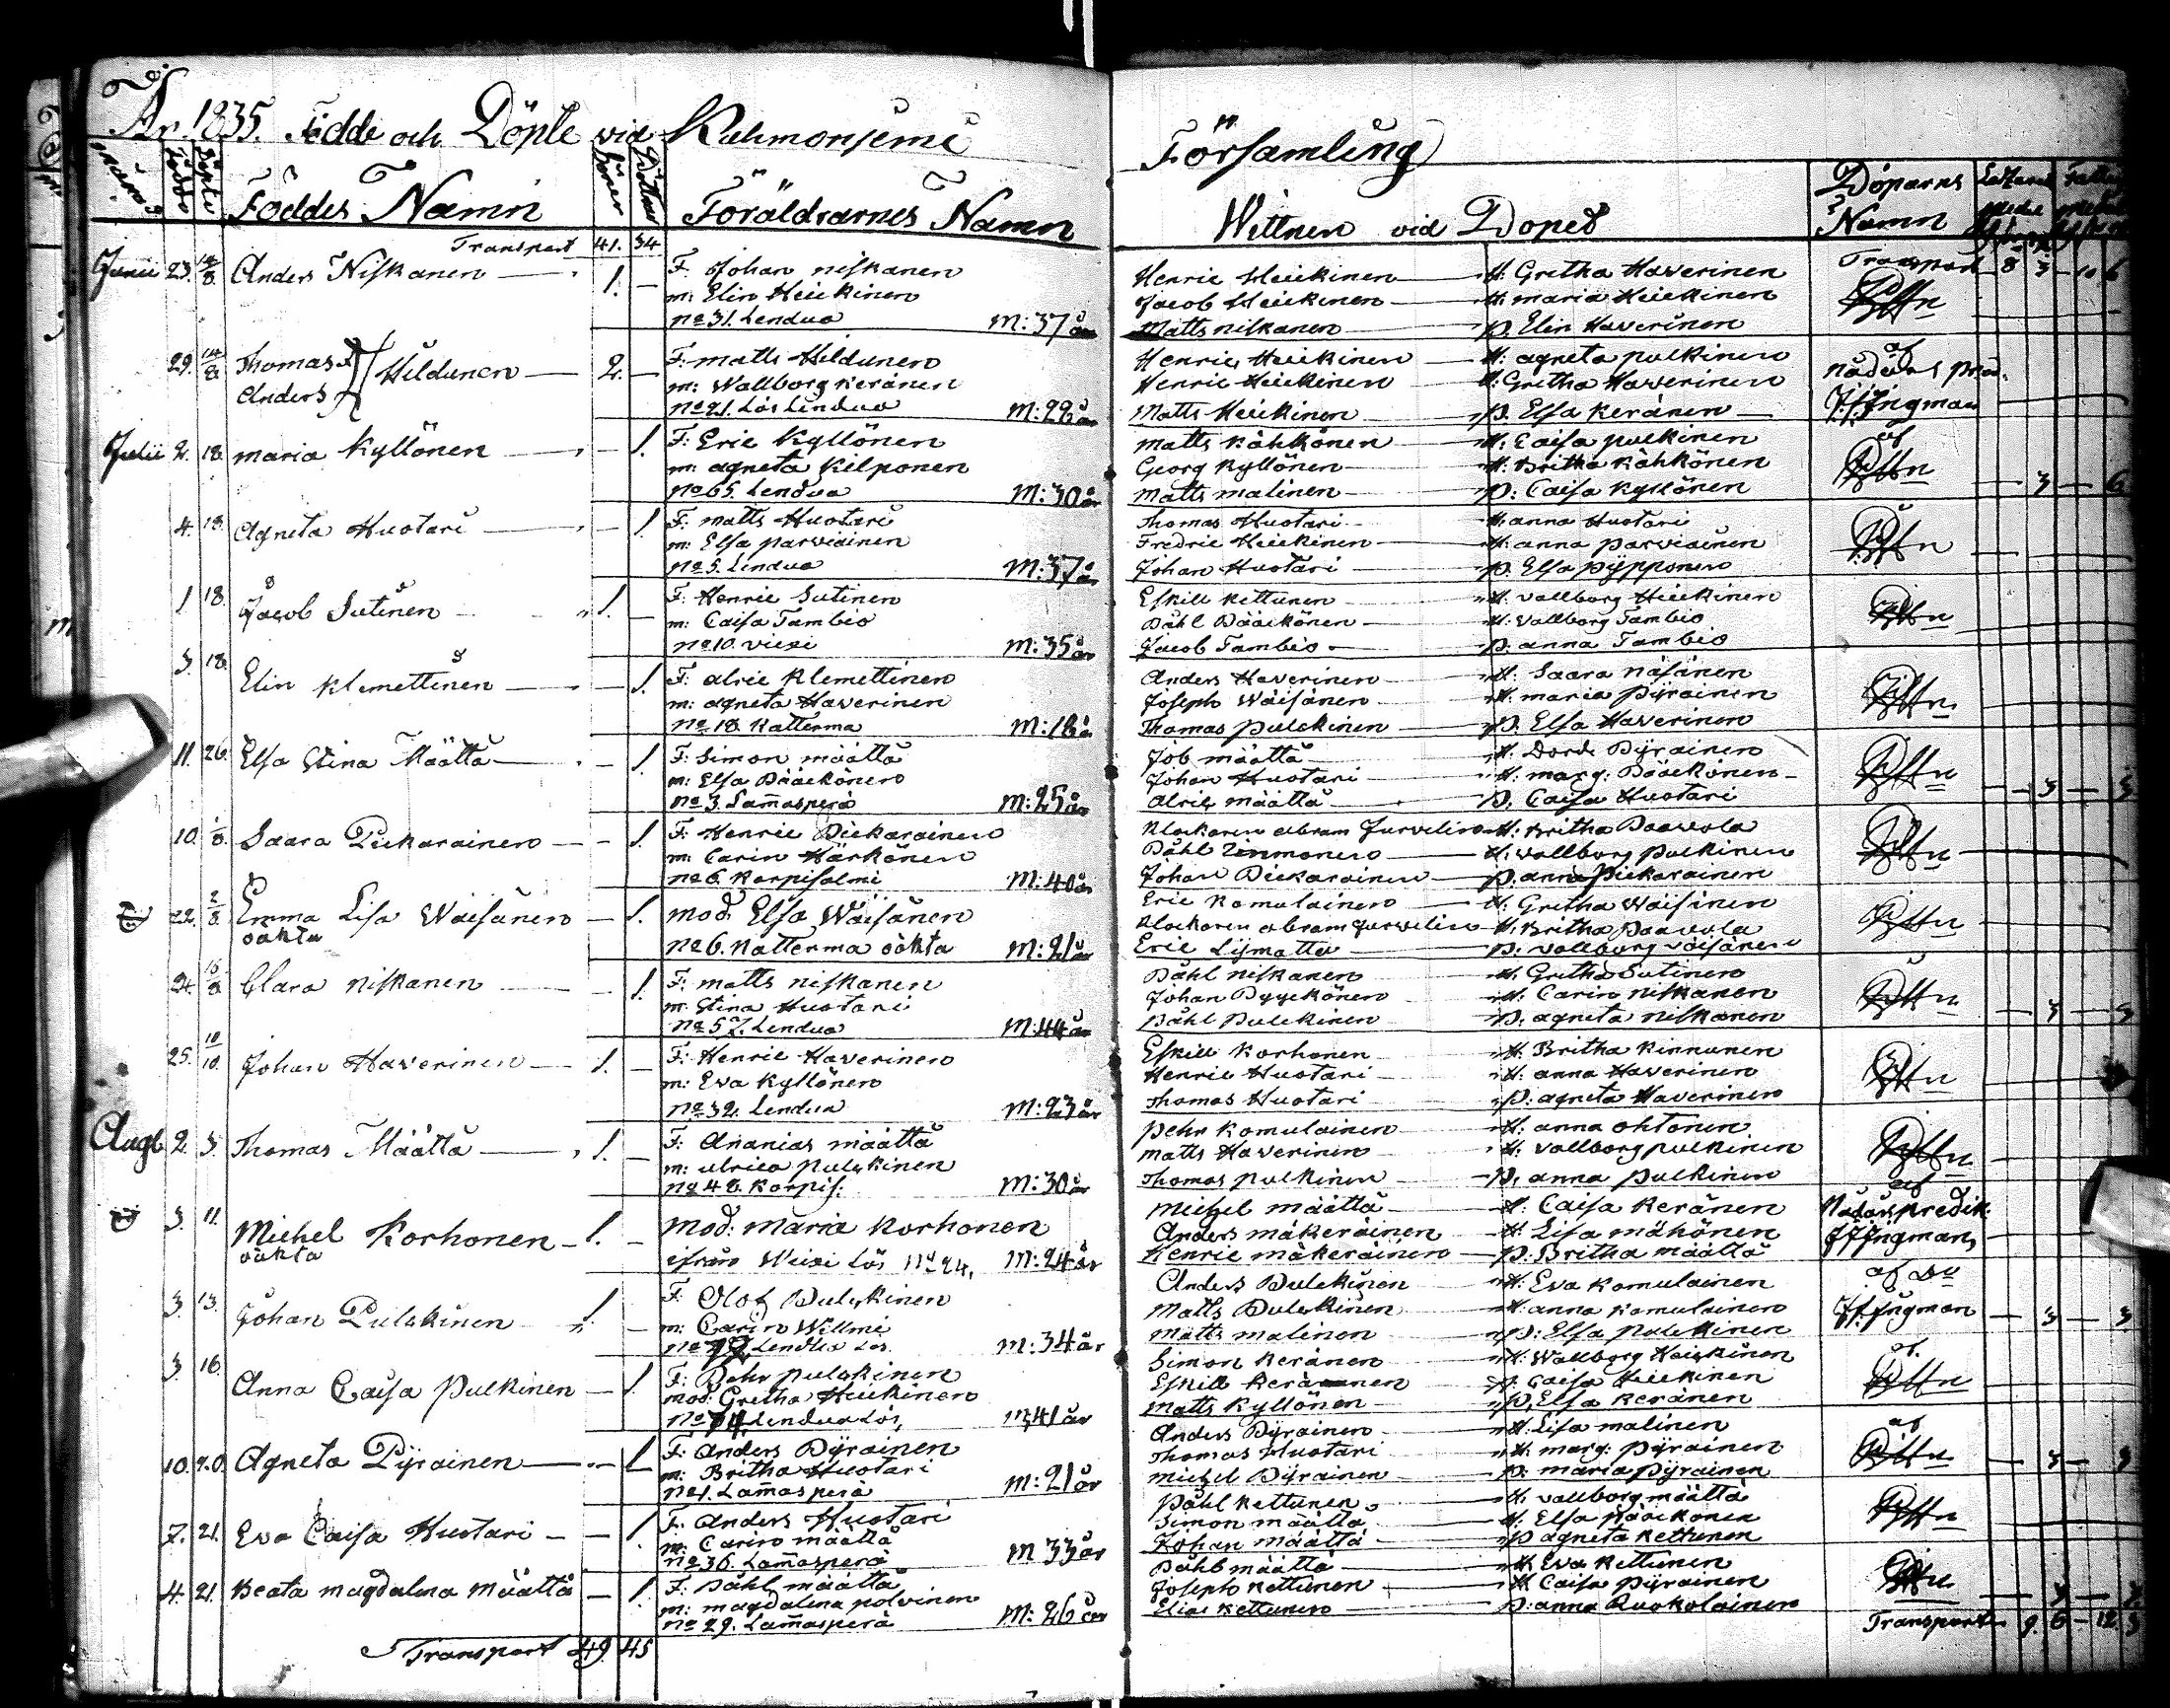 År 1835. Födde och Döpte vid Kuhmoniemi Församling
Födde Döpte Föddes Namn Söner Döttrar Föräldrarnes Namn Wittnen vid Dopet Döparns Namn
Transport 41. 34 Transport 8 3 10 6
Junii 23. Anders Niskanen 1. F: Johan Niskanen Henric Heickinen H: Gretha Haverinen
m: Elin Heickinen Jacob Heickinen H: Maria Heickinen
No 31. Lendua M: 37 år Matts Niskanen p. Elin Haverinen
29. 14/8 Thomas Anders Hildunen 2. F: Matts Hildunen Henric Heickinen H: Agneta Pulkinen af
m: Wallborg Keränen Henric Heickinen H: Gretha Haverinen
No 21. Lös Lendua M: 22 år Matts Heickinen p. Elsa Keränen Ingman
Julii 2. 18. Maria Kyllönen 1. F: Eric Kyllönen Matts Kähkönen H: Caisa Pulkinen af
m: Agneta Kilponen Georg Kyllönen H: Britha Kähkönen
No 65. Lendua M: 30 år Matts Malinen p: Caisa Kyllönen 3 6
4. 18. Agneta Huotari 1. F: Matts Huotari Thomas Huotari H: Anna Huotari
m: Elsa Parviainen Fredric Heickinen H: Anna Parviainen
No 5. Lendua M: 37 år Johan Huotari p. Elsa Pypponen
1 18. Jacob Sutinen 1. F: Henric Sutinen Eskill Kettunen H: Vallborg Heickinen
m: Caisa Tambio Påhl Pääckönen H: Vallborg Tambio
No 10. Viexi M: 35 år Jacob Tambio p. Anna Tambio
3. 18. Elin Klemettinen 1. F: Alric Klemettinen Anders Haverinen H: Saara Näsänen
m: Agneta Haverinen Joseph Wäisänen H: Maria Pyrainen
No 18. Katterma M: 18 å Thomas Pulckinen p. Elsa Haverinen
11. 26. Elsa Stina Määttä 1. F: Simon Määttä Job Määttä H. Dord. Pyrainen
m: Elsa Pääckönen Johan Huotari H: Marg: Pääckönen
No 3. Lam̄asperä M: 25 år Alric Määttä p. Caisa Huotari 3 3
10. 1/8. Saara Pickarainen 1. F: Henric Pickarainen Klockaren Abram Jurvelius H: Britha Paavola
m: Carin Härkönen Påhl Zinmonen H: Vallborg Pulkinen
No 6. Korpisalmi M: 40 år Johan Pickarainen p. Anna Pickarainen
22. 2/8 Emma Lisa Wäisänen 1. mod. Elsa Wäisänen Eric Komulainen H: Gretha Wäisänen
oäkta Klockaren Abram Jurvelius H. Britha Paavola
No 6. Katterma oäkta M: 21 år Eric Lijmatta p: Vallborg Väisänen
24. 15/8 Clara Niskanen 1. F: Matts Niskanen Påhl Niskanen H: Gretha Sutinen
m. Stina Huotari Johan Pyyckönen H: Carin Niskanen
No 57. Lendua M: 44 år Påhl Pulckinen p. Agneta Niskanen
25. 10/10. Johan Haverinen 1. F: Henric Haverinen Eskill Korhonen H: Britha Kinnunen
m: Eva Kyllönen Henric Huotari H: Anna Haverinen
No 32. Lendua M: 23 år Thomas Huotari p: Agneta Haverinen
Aug. 2. 3. Thomas Määttä 1. F: Ananias Määttä Pehr Komulainen H: Anna Ohtonen
m: Ulrica Pulckinen Matts Haverinen H: Vallborg Pulkinen
No 48. Korpis: M: 30 år Thomas Pulkinen p. Anna Pulkinen
3. 11. Michel Korhonen 1. mod: Maria Korhonen Michel Määttä H: Caisa Keränen af
oäkta Anders Mäkeräinen H. Lisa Mähönen Nådårspredik.
ifrån Weixi Lös No 24. M: 24 år Henric Mäkeräinen p: Britha Määttä Ingman
3. 13. Johan Pulckinen 1. F: Olof Pulckinen Anders Pulckinen H: Eva Komulainen
m: Carin Willmi Matts Pulckinen H: Anna Komulainen Ingman
Lendua Lös M: 34 år Matts Malinen p: Elsa Pulckinen 3 3
3 16. Anna Caisa Pulkinen 1. F: Pehr Pulckinen Simon Keränen H: Wallborg Heickinen af
mod: Gretha Heickinen Eskill Keränen p. Caisa Heickinen
Lendua Lös M: 41 år Matts Kyllönen p. Elsa Keränen
10. 20. Agneta Pyrainen 1 F: Anders Pyrainen Anders Pyrainen H. Lisa Malinen af
m: Britha Huotari Thomas Huotari H: Marg: Pyrainen
No 1. Lam̄asperä M: 21 år Michel Pyrainen p: Maria Pyrainen
7. 21. Eva Caisa Huotari 1 F. Anders Huotari Påhl Kettunen H. Vallborg Määttä
m: Carin Määttä Simon Määttä H. Elsa Pääckönen
No 36. Lam̄asperä M 33 år Johan Määttä p Agneta Kettunen
4. 21. Beata Magdalena Määttä 1. F: Påhl Määttä Påhl Määttä H Eva Kettunen
m: Magdalena Polvinen Joseph Kettunen H Caisa Pyrainen
No 29. Lam̄asperä M: 26 år Elias Kettunen p: Anna Ruokolainen
Transport 49. 45 Transport 9. 6 12. 3